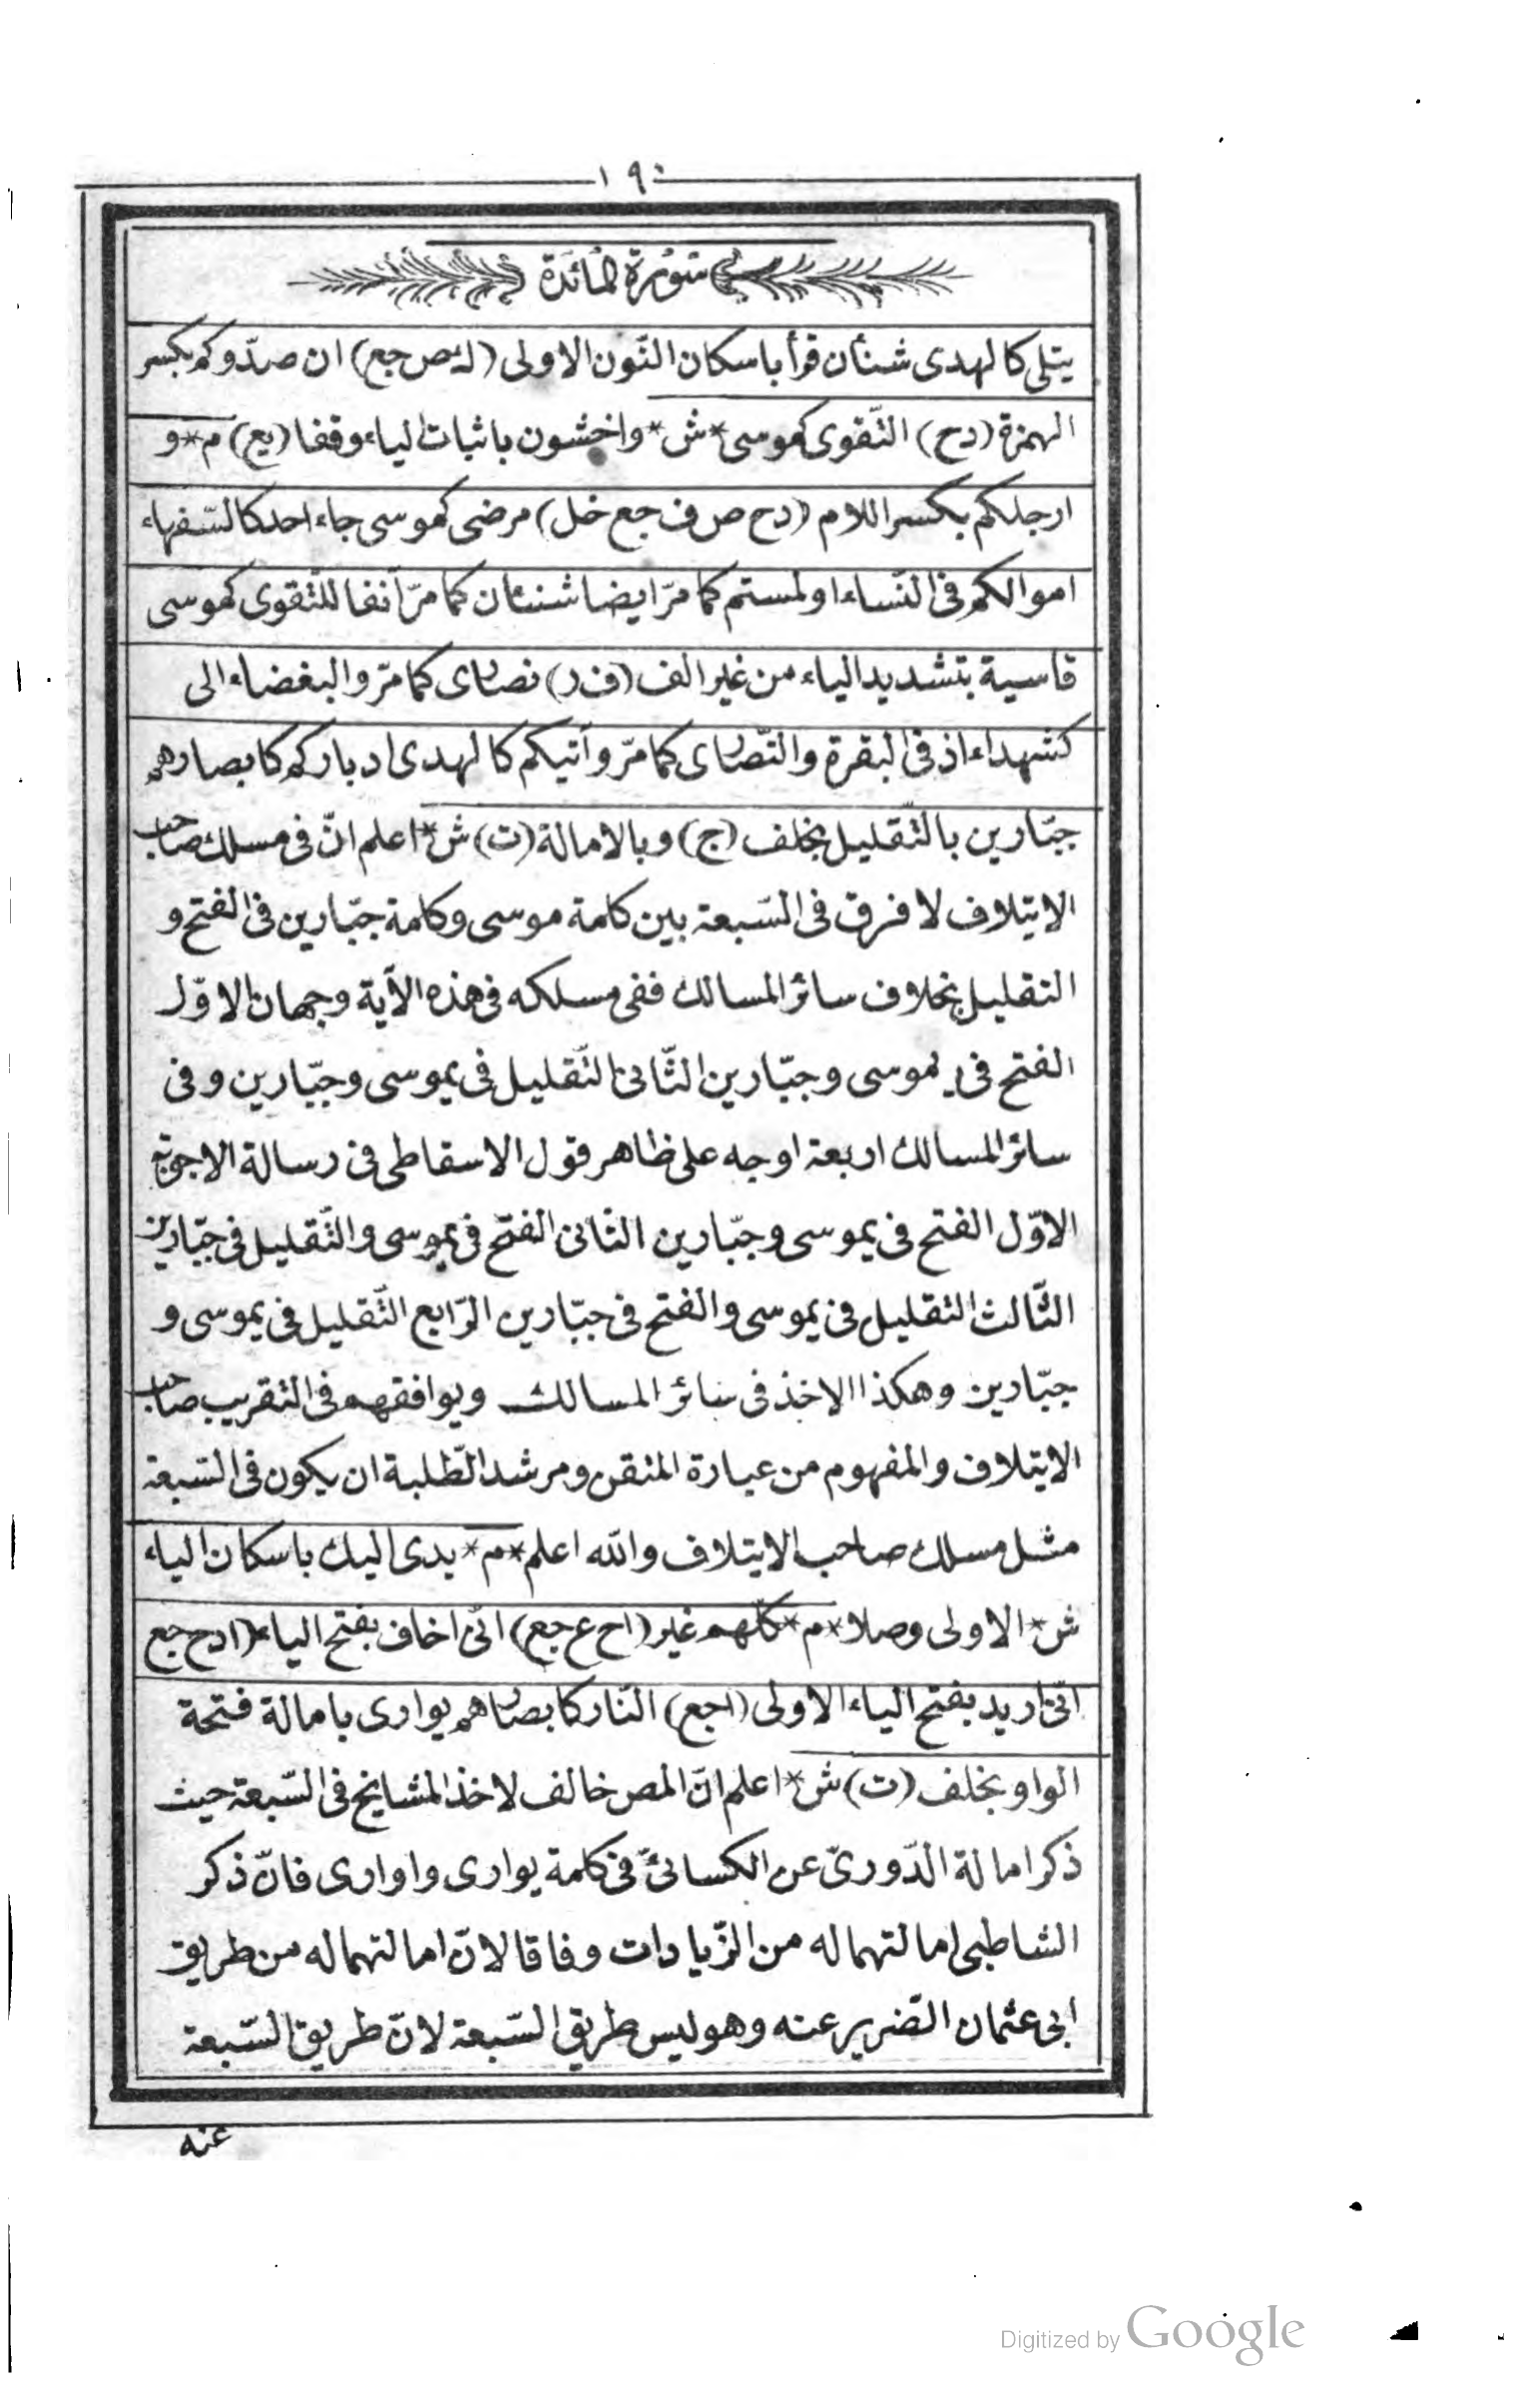 ١٩٠
سورة المائدة
يتلى كالهدى شنأن قرأ باسكان النّون الاولى (ك ص جع) ان صدّوكم بكسر
الهمزة (دح) التّقوى كموسى * ش * واخشون باثبات الياء وقفا (يع) م * و
ارجلكم بكسر اللام (دح ص ف جع خل) مرضى كموسى جاء احد كالسّفهاء
اموالكم فى النّساء او لمستم كما مرّ ايضا شنئان كما مرّ آنفا للتّقوى كموسى
قاسية بتشديد الياء من غير الف (ف ر) نصارى كما مرّ والبغضاء الى
كشهداء اذ فى البقرة والنّصارى كما مرّ وآتيكم كالهدى ادباركم كابصارهم
جبّارين بالتّقليل بخلف (ج) وبالامالة (ت) ش * اعلم انّ فى مسلك صاحب
الايتلاف لا فرق فى السّبعة بين كلمة موسى وكلمة جبّارين فى الفتح و
التقليل بخلاف سائر المسالك ففى مسلكه فى هذه الآية وجهان الاوّل
الفتح فى يموسى وجبّارين الثّانى التّقليل فى يموسى وجبّارين وفى
سائر المسالك اربعة اوجه على ظاهر قول الاسقاطى فى رسالة الاجوبة
الاوّل الفتح فى يموسى وجبّارين الثانى الفتح فى يموسى والتّقليل فى جبّارين
الثّالث التقليل فى يموسى والفتح فى جبّارين الرّابع التّقليل فى يموسى و
جبّارين وهكذا الاخذ فى سائر المسالك ويوافقهم فى التقريب صاحب
الايتلاف والمفهوم من عبارة المتقن ومرشد الطّلبة ان يكون فى السّبعة
مثل مسلك صاحب الايتلاف والله اعلم * م * يدى اليك باسكان الياء
ش * الاولى وصلا * م * كلّهم غير (اح ع جع) انّى اخاف بفتح الياء (ادح جع
انّى اريد بفتح الياء الاولى (اجع) النّار كابصارهم يوارى بامالة فتحة
الواو بخلف (ت) ش * اعلم انّ المص خالف لاخذ المشايخ فى السّبعة حيث
ذكر امالة الدّورىّ عن الكسائىّ فى كلمة يوارى واوارى فانّ ذكر
الشاطبى امالتهما له من الزّيادات وفاقا لانّ امالتهما له من طريق
ابى عثمان الضّرير عنه وهو ليس طريق السّبعة لانّ طريق السّبعة
عنه
Digitized by Google